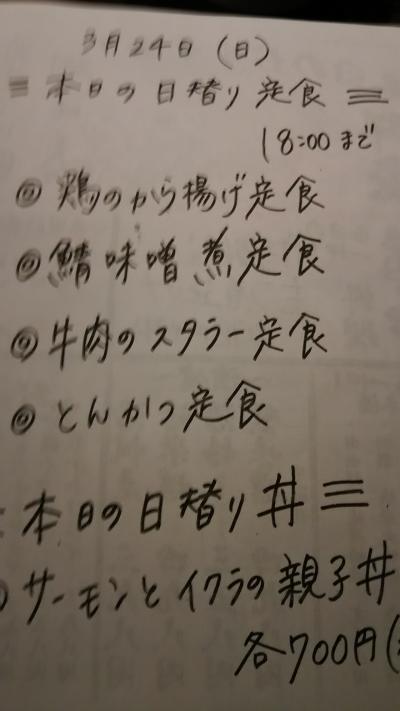 3月24日(日)
≡本日の日替り定食≡
18:00まで
◎鶏のから揚げ定食
◎鯖味噌煮定食
◎牛肉のスタラー定食
◎とんかつ定食
本日の日替り丼≡
サーモンとイクラの親子丼
各700円(